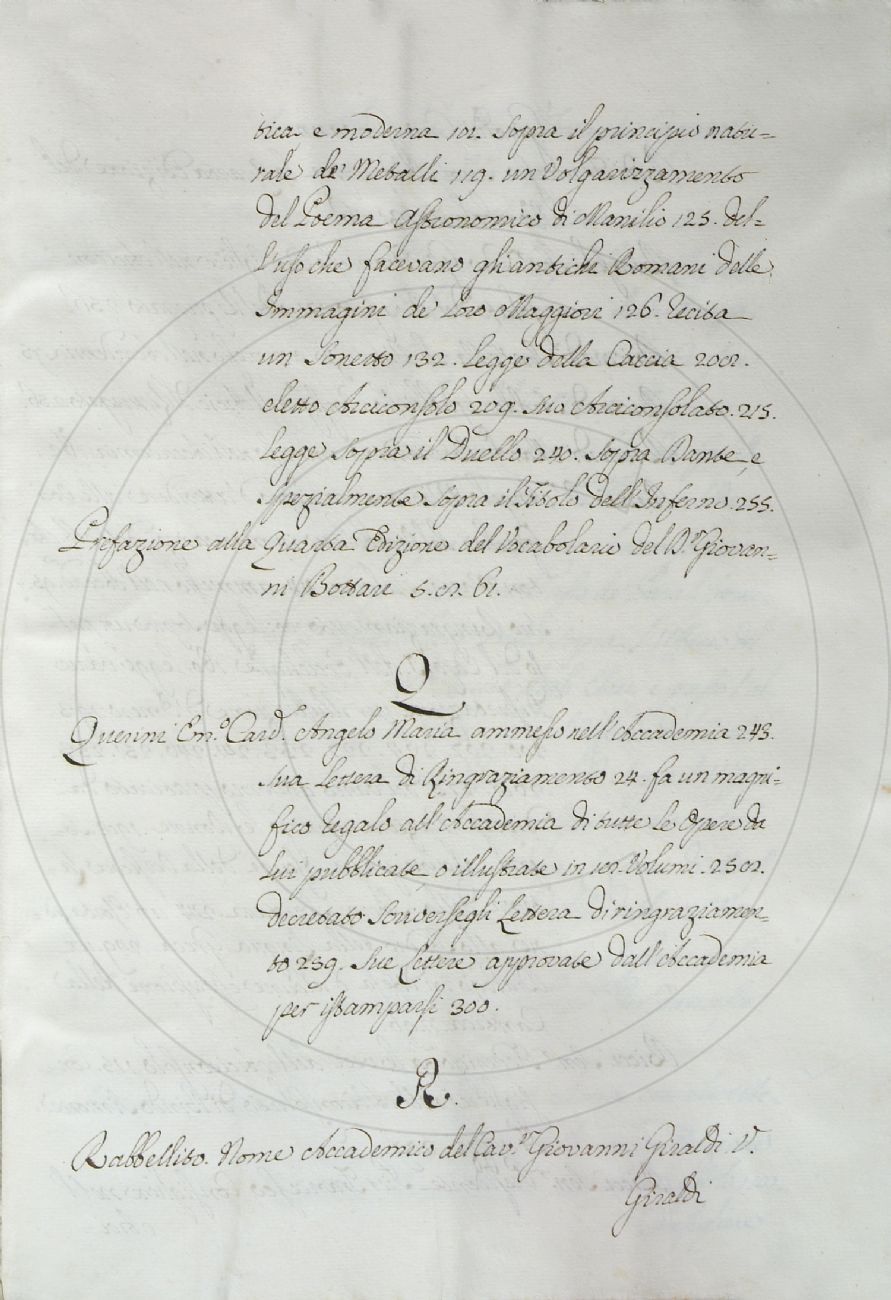 tica e moderna 101. Sopra il principio natu=
rale de' Metalli 119. un Volgarizzamento
del Poema Astronomico di Manilio 125. del=
l'uso che facevano gli antichi Romani delle
Immagini de' loro Maggiori 126. recita
un Sonetto 132. legge della Caccia 202.
eletto Arciconsolo 209. suo Arciconsolato. 215.
legge sopra il Duello 240. sopra Dante, e
spezialmente sopra il Titolo dell'Inferno 255.
Prefazione alla Quarta Edizione del Vocabolario del D.r Giovan=
ni Bottari 5. 61.
Q
Querini Em.o Card. Angelo Maria ammesso nell'Accademia 243.
sua Lettera di Ringraziamento 24. fa un magni=
fico regalo all'Accademia di tutte le Opere da
lui pubblicate, o illustrate in 12. Volumi. 252.
decretato scriversegli Lettera di ringraziamen=
to 259. sue Lettere approvate dall'Accademia
per istamparsi 300.
R.
Rabbellito. Nome Accademico del Cav.r Giovanni Giraldi. V.
Giraldi